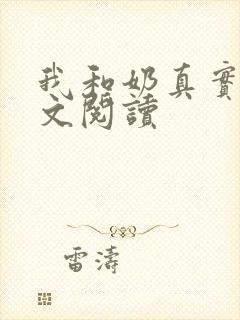 我和奶真實
文閱讀
雷濤